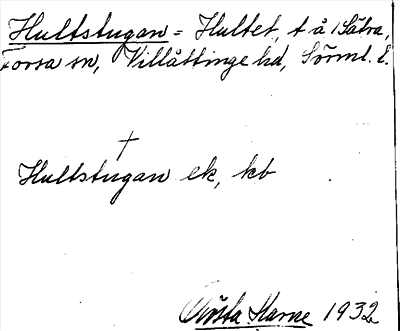 Hultstugan = Hultet, t å 1 Sätra,
Forsa sn, Villåttinge hd, Sörml. l.
†
Hultstugan ek, kb
Gösta Karne 1932